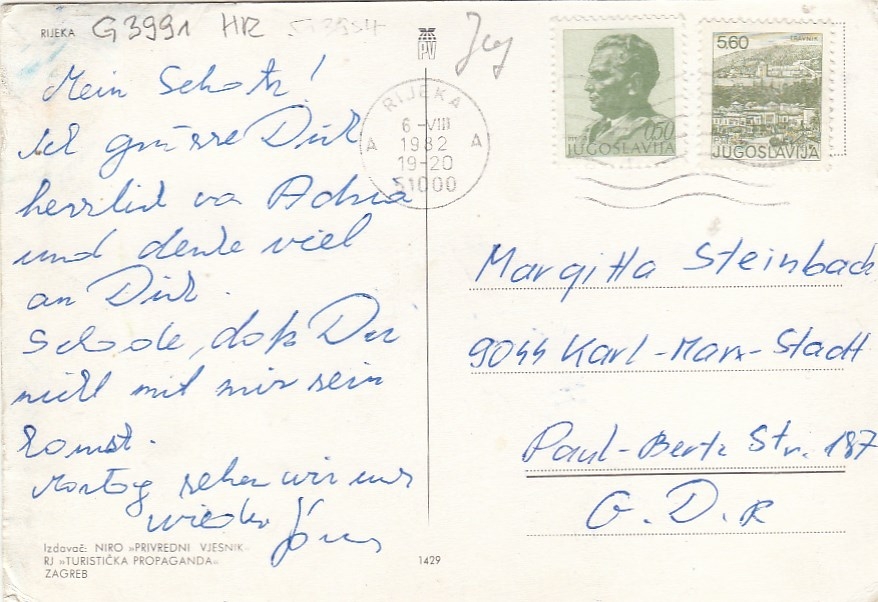 RIJEKA
G 3991 HR
PV
Jug
Mein Schatz!
Ich grüsse Dich
herrlich va Adria
und denke viel
an Dich.
Schade, daß Du
nicht mit mir sein
konnst.
Montag sehen wir uns
wieder
RIJEKA
6-VIII
1982
19-20
51000
A A
0.50
JUGOSLAVIJA
5.60
TRAVNIK
JUGOSLAVIJA
Margitta Steinbach
9044 Karl-Marx-Stadt
Paul-Bertz Str. 187
G.D.R
Izdavač: NIRO »PRIVREDNI VJESNIK«
RJ »TURISTIČKA PROPAGANDA«
ZAGREB
1429